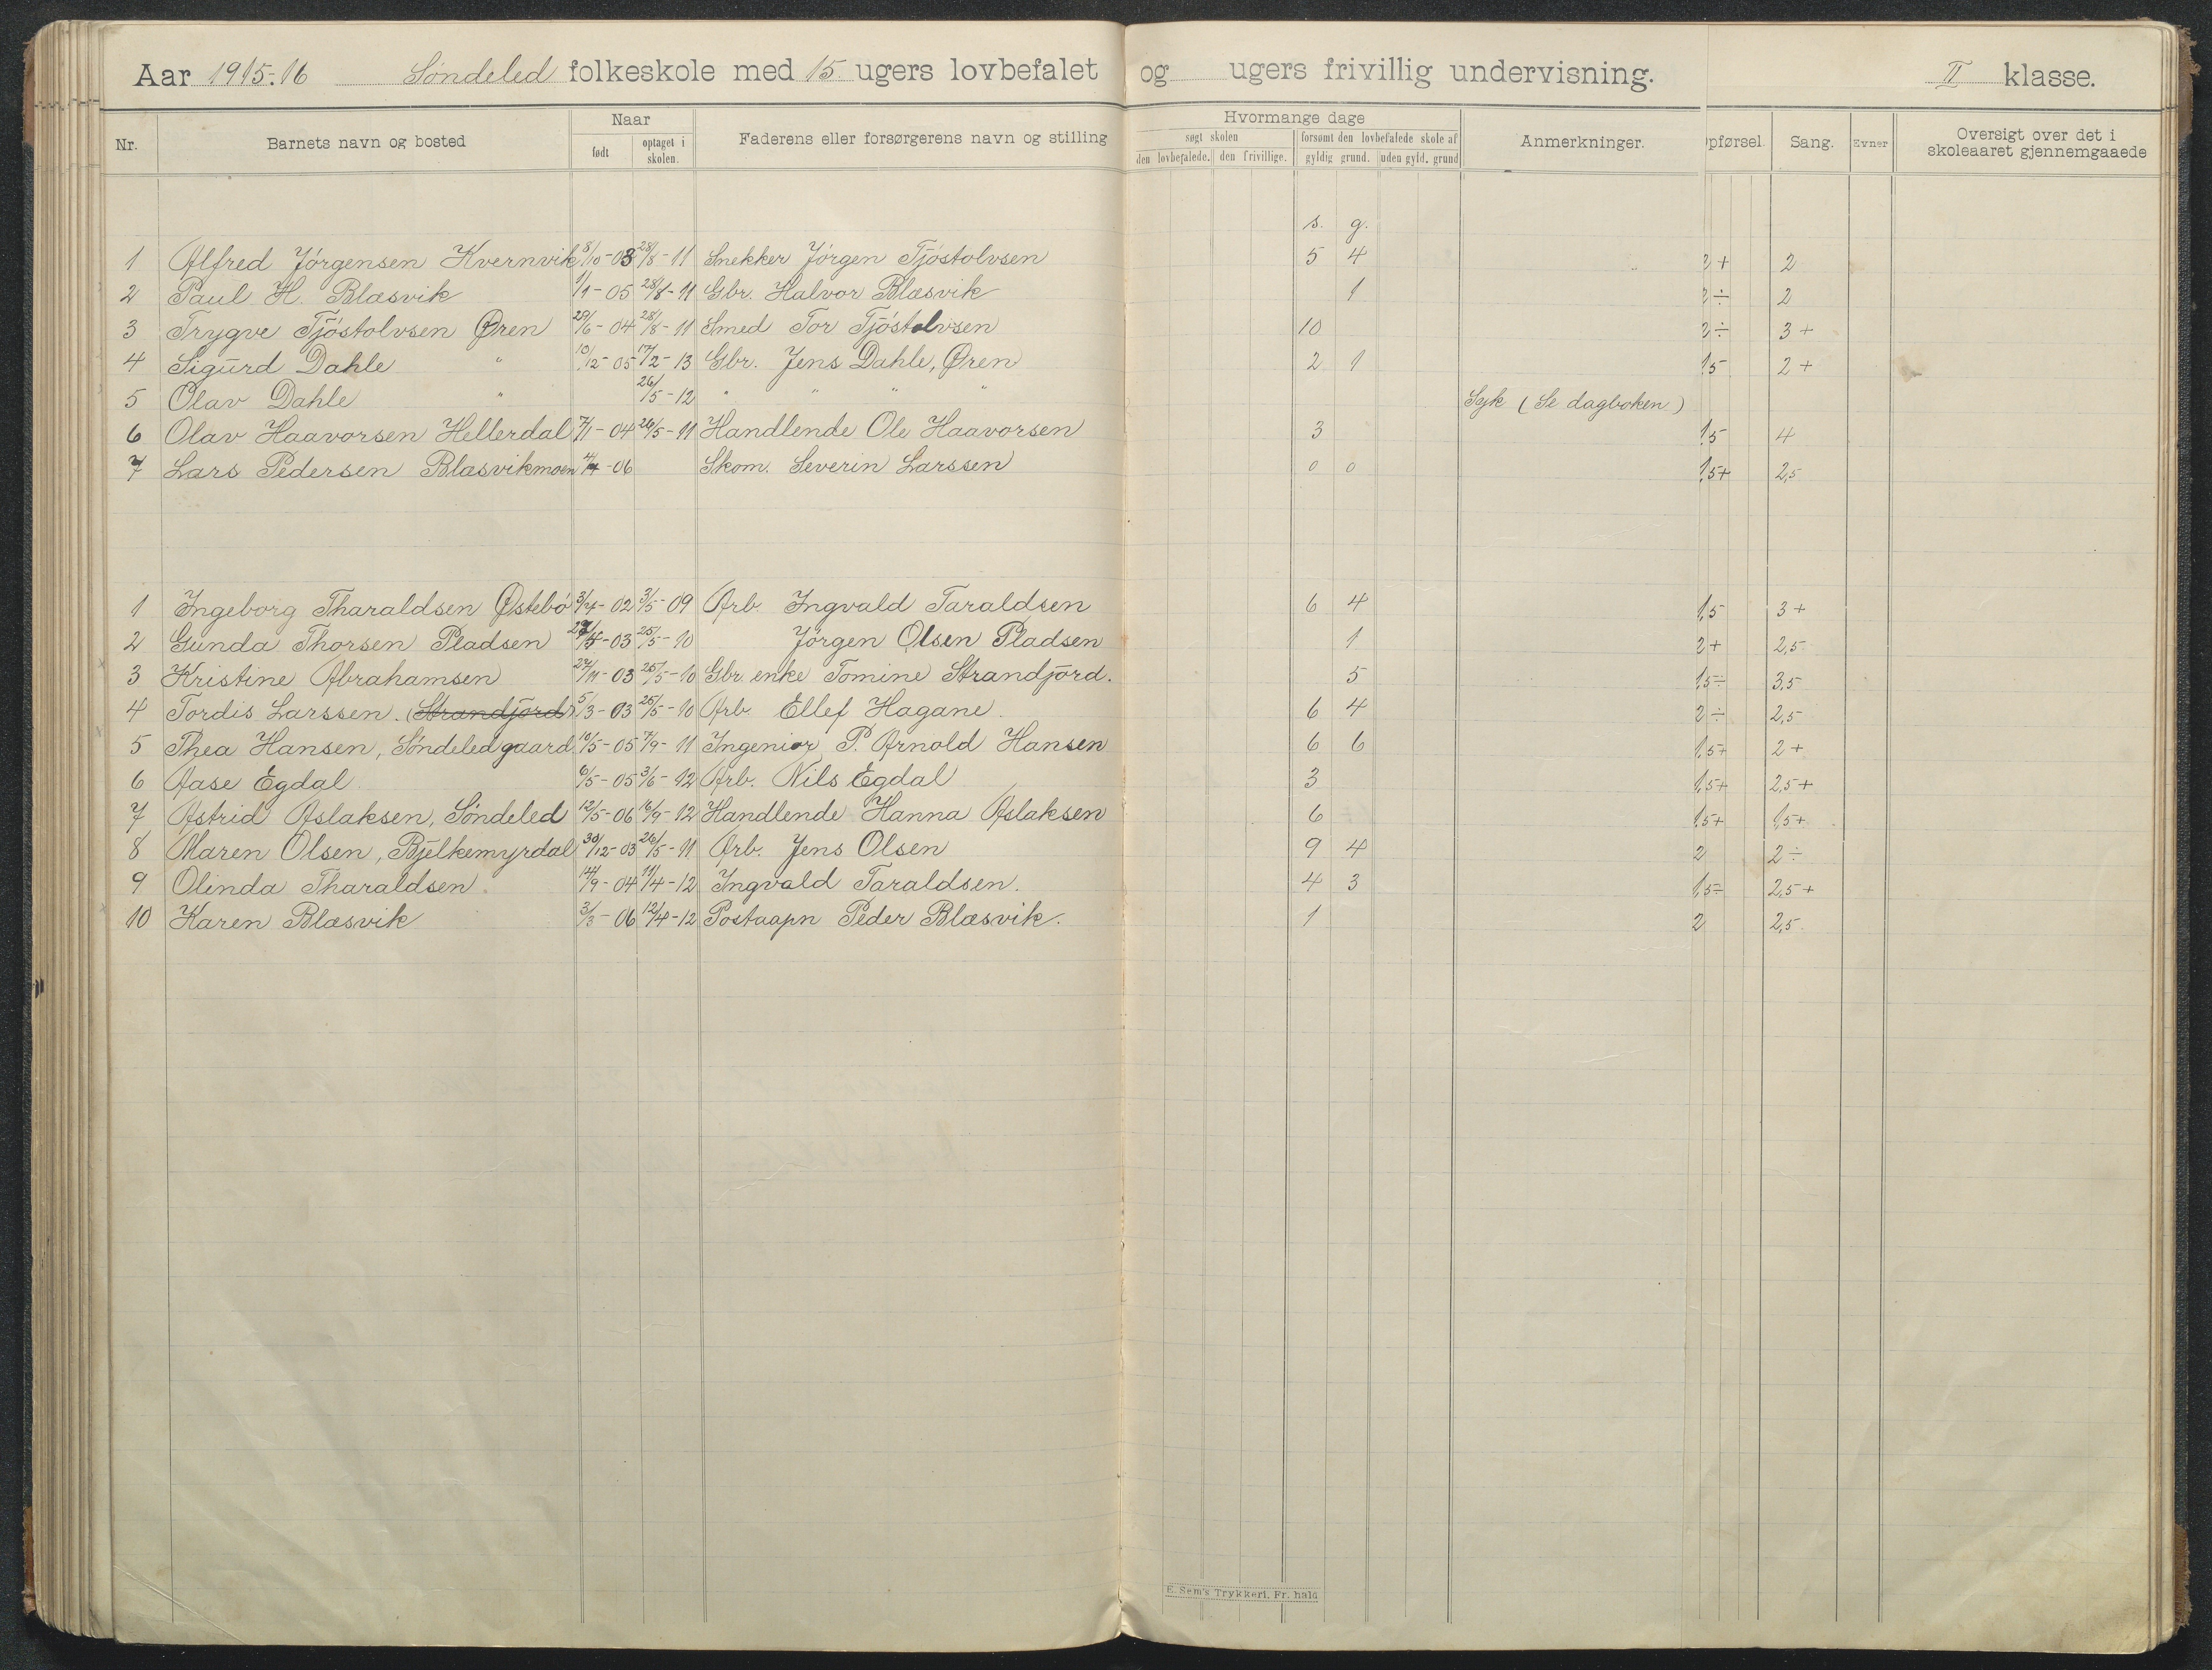 Aar 1915-16 Søndeled folkeskole med 15 ugers lovbefalet og ugers frivillig undervisning. II klasse.
Nr. Barnets navn og bosted Naar født optaget i skolen. Faderens eller forsørgerens navn og stilling Hvormange dage søgt skolen den lovbefalede. den frivillige. forsømt den lovbefalede skole af gyldig grund. uden gyld. grund Anmerkninger. Opførsel. Sang. Evner Oversigt over det i skoleaaret gjennemgaaede
s. g.
1 Alfred Jörgensen Kvernvik 8/10-03 28/8-11 Snekker Jörgen Tjöstolvsen 5 4 2+ 2
2 Paul H. Blæsvik 1/1-05 28/8-11 Gbr. Halvor Blæsvik 1 2÷ 2
3 Trygve Tjöstolvsen Øren 29/6-04 28/8-11 Smed Tor Tjöstolvsen 10 2÷ 3+
4 Sigurd Dahle " 10/12-05 17/2-13 Gbr. Jens Dahle, Øren 2 1 1,5 2+
5 Olav Dahle " 26/5-12 " " " " Syk (Se dagboken)
6 Olav Haavorsen Hellerdal 7/1-04 26/5-11 Handlende Ole Haavorsen 3 1,5 4
7 Lars Pedersen Blæsvikmoen 4/4-06 Skom. Severin Larssen 0 0 1,5+ 2,5
1 Ingeborg Tharaldsen Østebö 3/4-02 3/5-09 Arb. Ingvald Taraldsen 6 4 1,5 3+
2 Gunda Thorsen Pladsen 4-03 25/5-10 Jörgen Olsen Pladsen 1 2+ 2,5
3 Kristine Abrahamsen 27/11-03 25/5-10 Gbr. enke Tomine Strandjord. 5 1,5÷ 3,5
4 Tordis Larssen. (Strandjord) 5/3-03 25/5-10 Arb. Ellef Hagane. 6 4 2÷ 2,5
5 Thea Hansen, Söndeledgaard 10/5-05 7/9-11 Ingeniør P. Arnold Hansen 6 6 1,5+ 2+
6 Aase Egdal 6/5-05 3/6-12 Arb. Nils Egdal 3 1,5+ 2,5+
7 Astrid Aslaksen, Söndeled 12/5-06 16/9-12 Handlende Hanna Aslaksen 6 1,5+ 1,5+
8 Maren Olsen, Bjelkemyrdal 30/12-03 26/5-11 Arb. Jens Olsen 9 4 2 2÷
9 Olinda Tharaldsen. 14/9-04 11/4-12 Ingvald Taraldsen. 4 3 1,5÷ 2,5+
10 Karen Blæsvik 3/3-06 12/4-12 Postaapn Peder Blæsvik. 1 2 2,5.
E. Sem's Trykkeri, Fr. hald